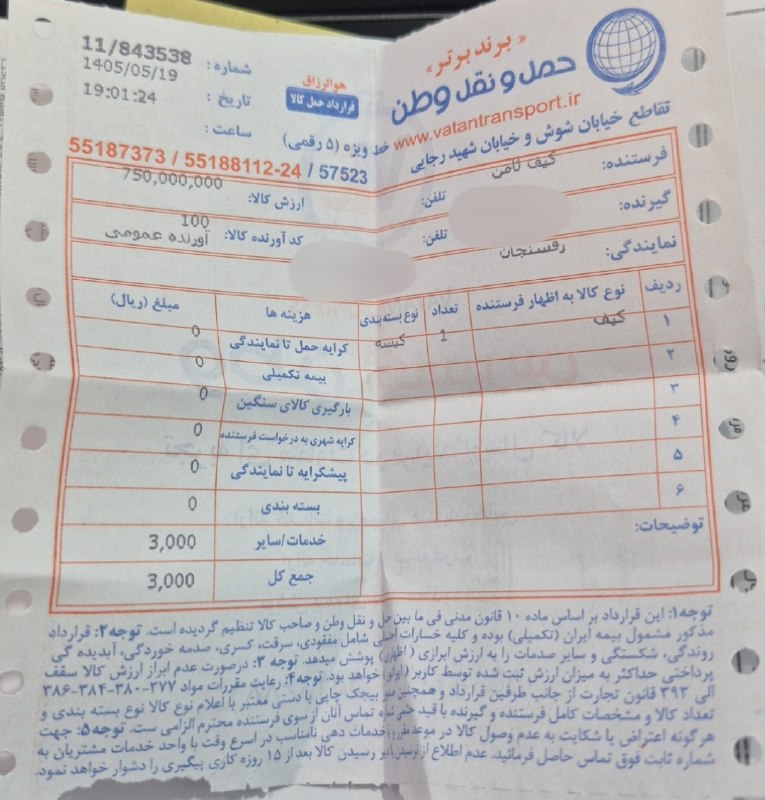 « برند برتر »
حمل و نقل وطن
www.vatantransport.ir
تقاطع خیابان شوش و خیابان شهید رجایی
خط ویژه (۵ رقمی)
55187373 / 55188112-24 / 57523
هوالرزاق
قرارداد حمل کالا
شماره : 11/843538
تاریخ : 1405/05/19
ساعت : 19:01:24
فرستنده: کیف ثامن تلفن: ارزش کالا: 750,000,000
گیرنده: تلفن: کد آورنده کالا: 100 آورنده عمومی
نمایندگی: رفسنجان
ردیف نوع کالا به اظهار فرستنده تعداد نوع بسته بندی هزینه ها مبلغ (ریال)
۱ کیف 1 کیسه کرایه حمل تا نمایندگی 0
۲ بیمه تکمیلی 0
۳ بارگیری کالای سنگین 0
۴ کرایه شهری به درخواست فرستنده 0
۵ پیشکرایه تا نمایندگی 0
۶ بسته بندی 0
توضیحات: خدمات/سایر 3,000
جمع کل 3,000
توجه۱: این قرارداد بر اساس ماده ۱۰ قانون مدنی فی ما بین حمل و نقل وطن و صاحب کالا تنظیم گردیده است. توجه۲: قرارداد
مذکور مشمول بیمه ایران (تکمیلی) بوده و کلیه خسارات اصلی شامل مفقودی، سرقت، کسری، صدمه خوردگی، آبدیده گی
روندگی، شکستگی و سایر صدمات را به ارزش ابرازی (اظهاری) پوشش میدهد. توجه ۳: درصورت عدم ابراز ارزش کالا سقف
پرداختی حداکثر به میزان ارزش ثبت شده توسط کاربر خواهد بود. توجه۴: رعایت مقررات مواد ۳۷۷-۳۸۰-۳۸۴-۳۸۶
الی ۳۹۳ قانون تجارت از جانب طرفین قرارداد و همچنین بیجک چاپی یا دستی معتبر با اعلام نوع کالا نوع بسته بندی و
تعداد کالا و مشخصات کامل فرستنده و گیرنده با قید تماس آنان از سوی فرستنده محترم الزامی ست. توجه۵: جهت
هرگونه اعتراض یا شکایت به عدم وصول کالا در موعد مقرر و یا خدمات دهی نامناسب در اسرع وقت با واحد خدمات مشتریان به
شماره ثابت فوق تماس حاصل فرمائید. عدم اطلاع از رسیدن کالا بعد از ۱۵ روزه کاری پیگیری را دشوار خواهد نمود.